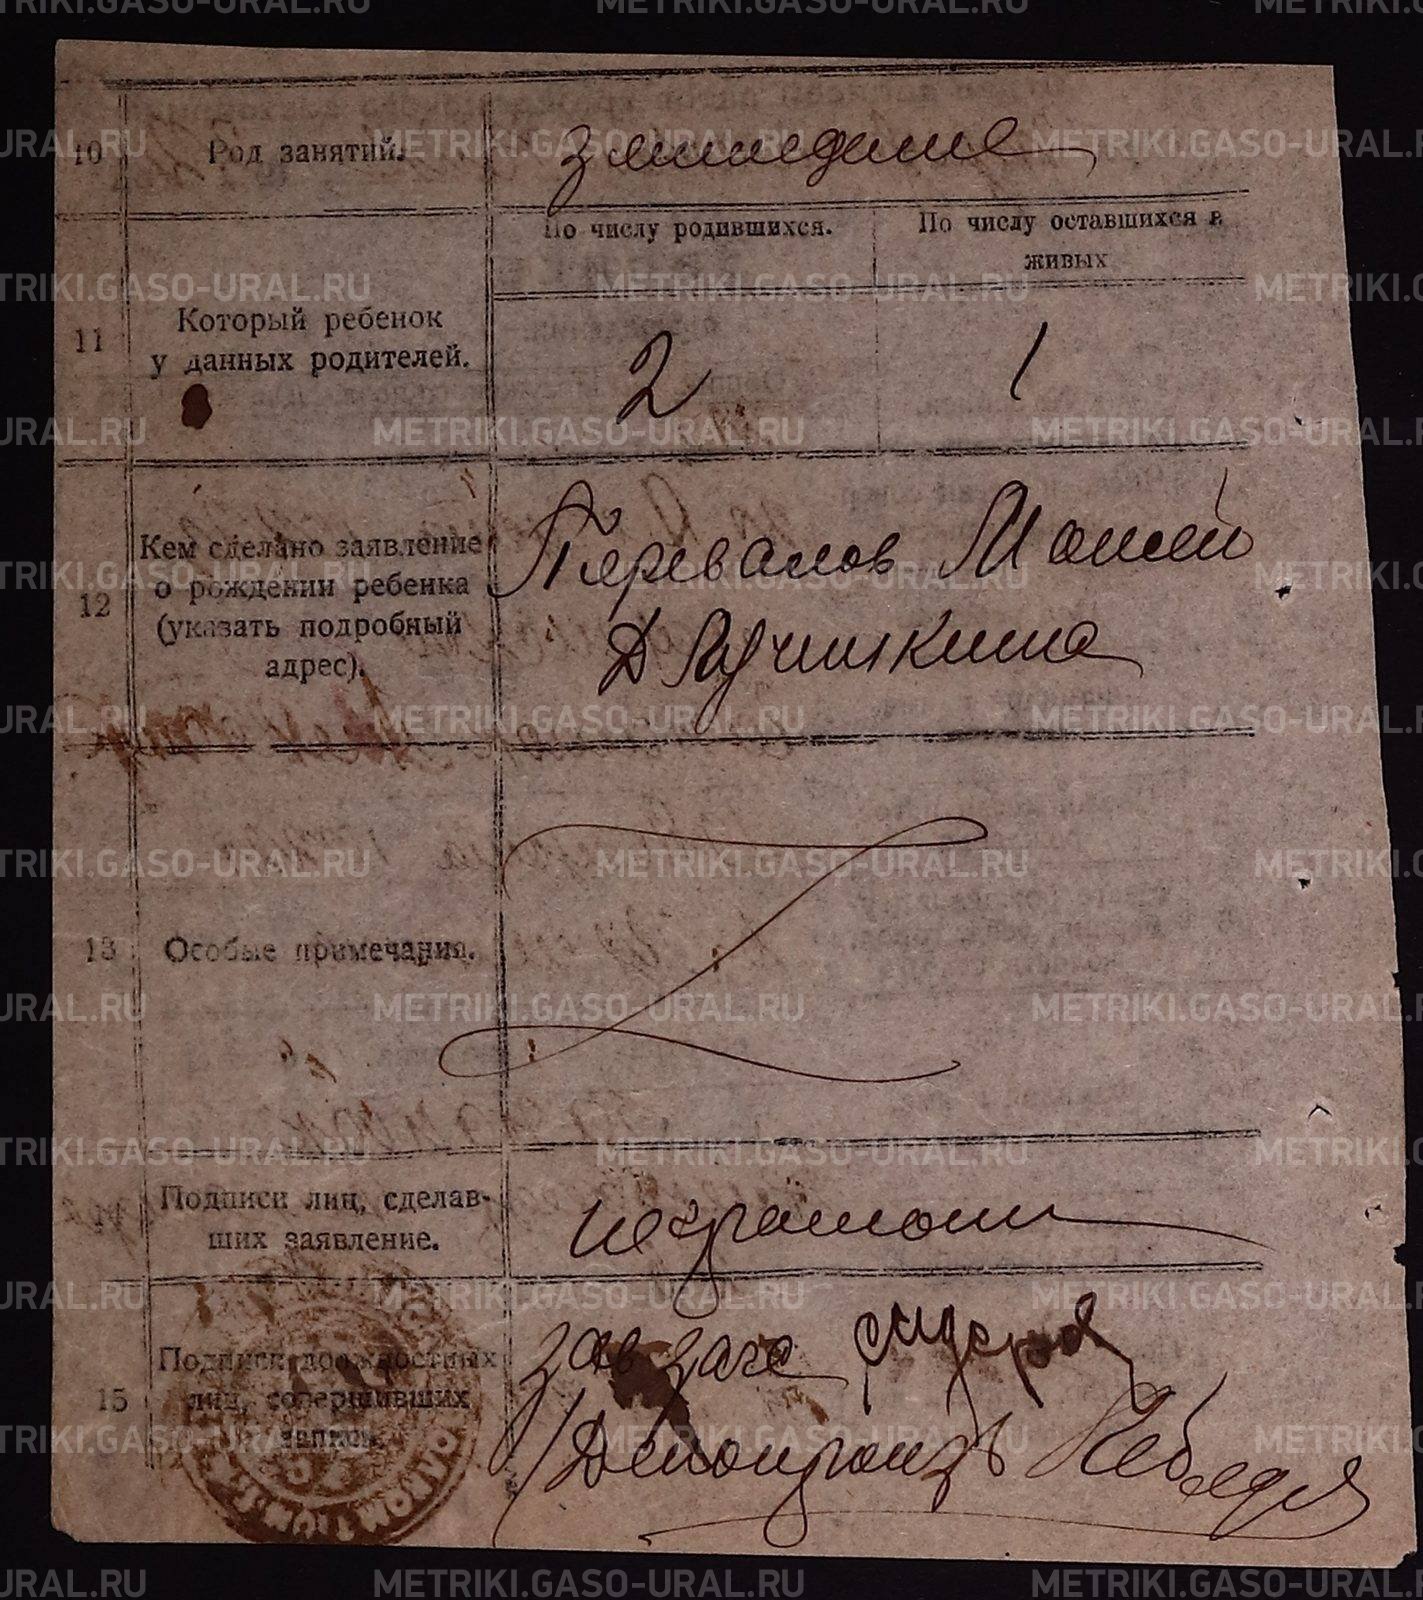 10 Род занятий. земледелие
По числу родившихся. По числу оставшихся в живых
11 Который ребенок
у данных родителей. 2 1
12 Кем сделано заявление
о рождении ребенка
(указать подробный
адрес). Перевалов Моисей
Д
13 Особые примечания.
14 Подписи лиц, сделав-
ших заявление. неграмотн
15 Подписи должностных
лиц, совершивших
запись. зав загс
Делопроизв
METRIKI.GASO-URAL.RU